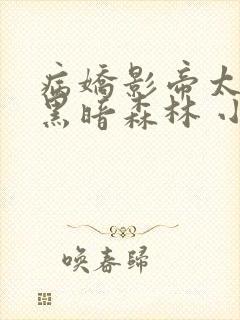 病嬌影帝太
黑暗森林 小
喚春歸